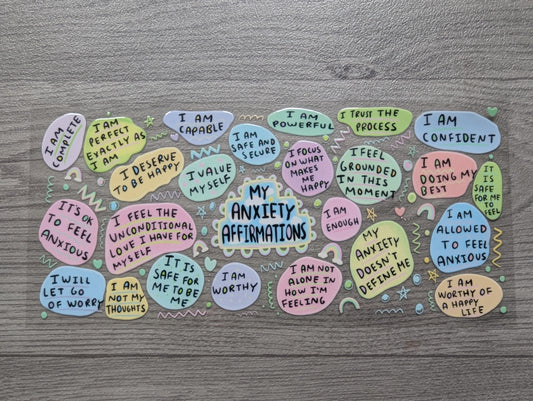 I AM
COMPLETE
I AM
PERFECT
EXACTLY AS
I AM
I AM
CAPABLE
I AM
SAFE AND
SECURE
I AM
POWERFUL
I TRUST THE
PROCESS
I AM
CONFIDENT
I DESERVE
TO BE HAPPY
I VALUE
MYSELF
I FOCUS
ON WHAT
MAKES
ME HAPPY
I FEEL
GROUNDED
IN THIS
MOMENT
I AM
DOING MY
BEST
IT IS
SAFE FOR
ME TO
FEEL
IT'S OK
TO FEEL
ANXIOUS
I FEEL THE
UNCONDITIONAL
LOVE I HAVE FOR
MYSELF
MY
ANXIETY
AFFIRMATIONS
I AM
ENOUGH
MY
ANXIETY
DOESN'T
DEFINE ME
I AM
ALLOWED
TO FEEL
ANXIOUS
I WILL
LET GO
OF WORRY
I AM
NOT MY
THOUGHTS
IT IS
SAFE FOR
ME TO BE
ME
I AM
WORTHY
I AM NOT
ALONE IN
HOW I'M
FEELING
I AM
WORTHY OF
A HAPPY
LIFE